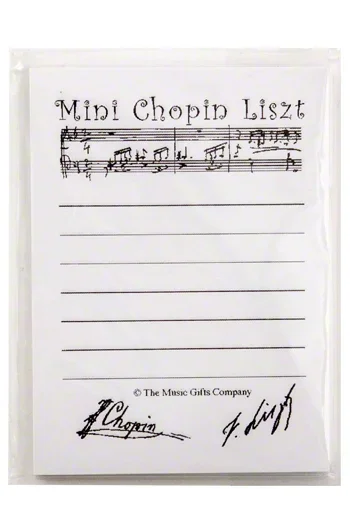 Mini Chopin Liszt
© The Music Gifts Company
Chopin
F. Liszt